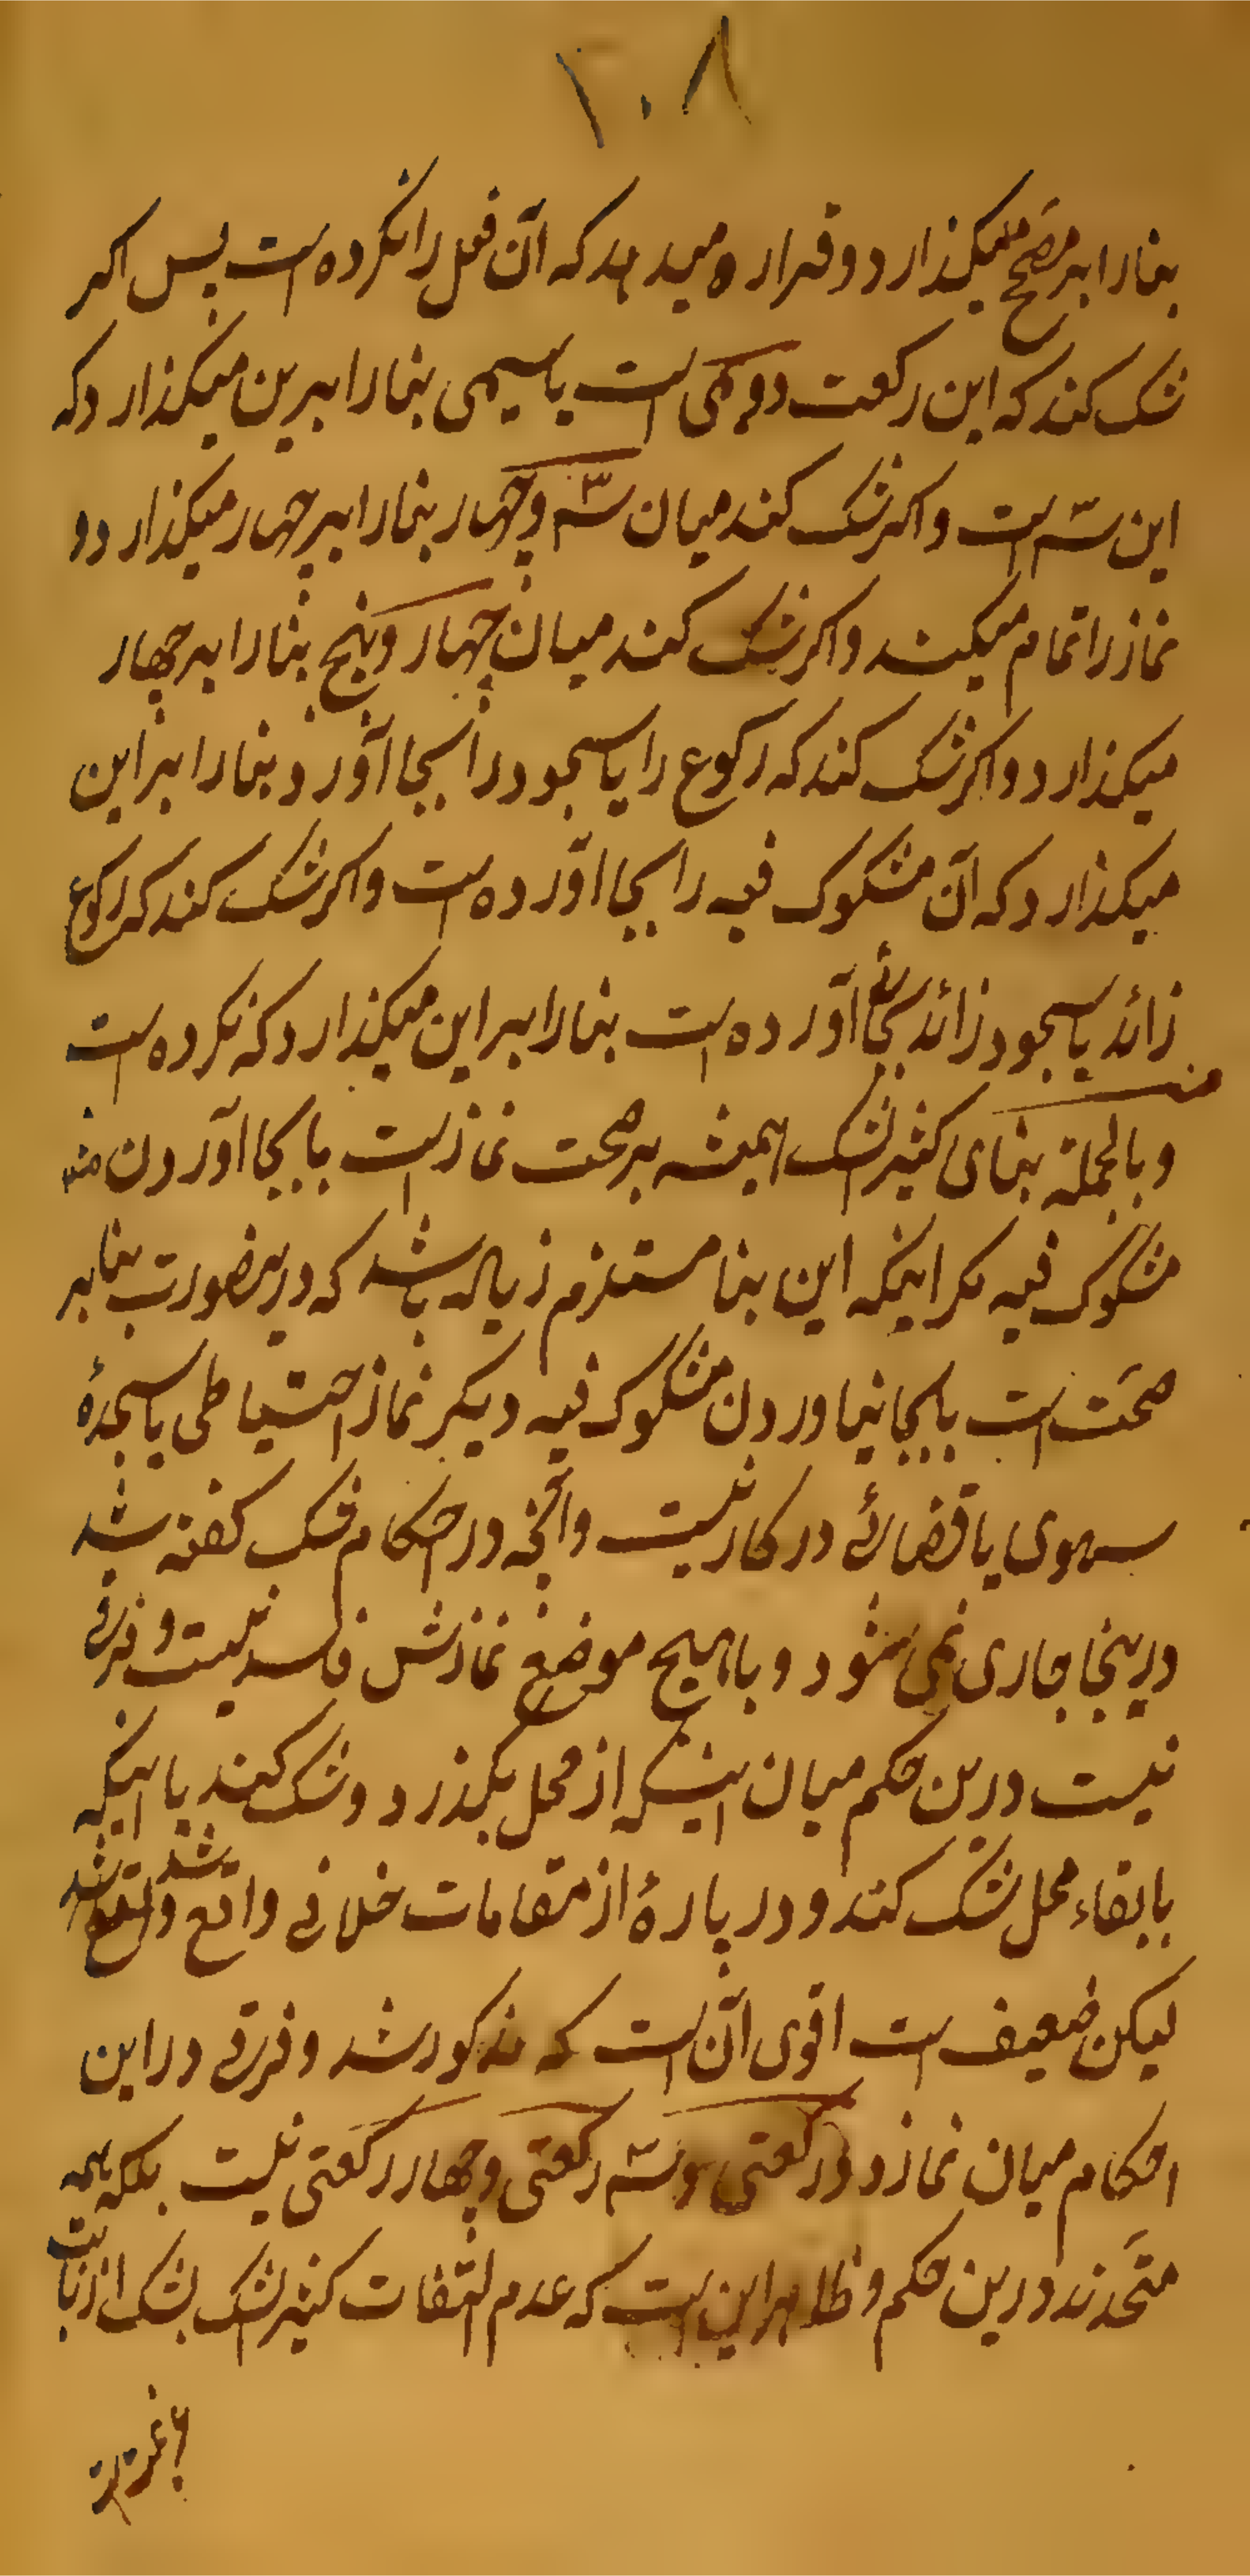 ۱۰۸
بنا را بر مصحح میگذارد و قرار میدهد که آن فعل را نکرده است پس اکر
شک کند که این رکعت دویمی است یا سیمی بنا را برین میکذارد که
این سه است و اکر شک کند میان سه و چهار بنا را بر چهار میکذارد و
نماز را تمام میکند و اکر شک کند میان چهار و پنج بنا را بر چهار
میکذارد و اکر شک کند که رکوع را یا سجود را بجا آورد بنا را بر این
میکذارد که آن مشکوک فیه را بجا آورده است و اکر شک کند که رکوع
زائد یا سجود زائد بجا آورده است بنا را بر این میکذارد که نکرده است
و بالجملة بنای کثیر الشک همیشه بر صحت نماز است با بجا آوردن
مشکوک فیه مکر اینکه این بنا مستلزم زیاده باشد که درینصورت بنا بر
صحت است با بجا نیاوردن مشکوک فیه دیکر نماز احتیاطی یا سجدهٔ
سهوی یا قضائی در کار نیست و آنچه در احکام شک کفته شد
درینجا جاری نمی شود و با هیچ موضع نمازش فاسد نیست و فرقی
نیست درین حکم میان اینکه از محل بکذرد و شک کند یا اینکه
با بقاء محل شک کند و در پارهٔ از مقامات خلافی واقع شد
لیکن ضعیف است اقوی آنست که مذکور شد و فرقی در این
احکام میان نماز دو رکعتی و سه رکعتی و چهار رکعتی نیست بلکه همه
متحدند درین حکم و ظاهر این است که عدم التفات کثیر الشک بشک از بابت